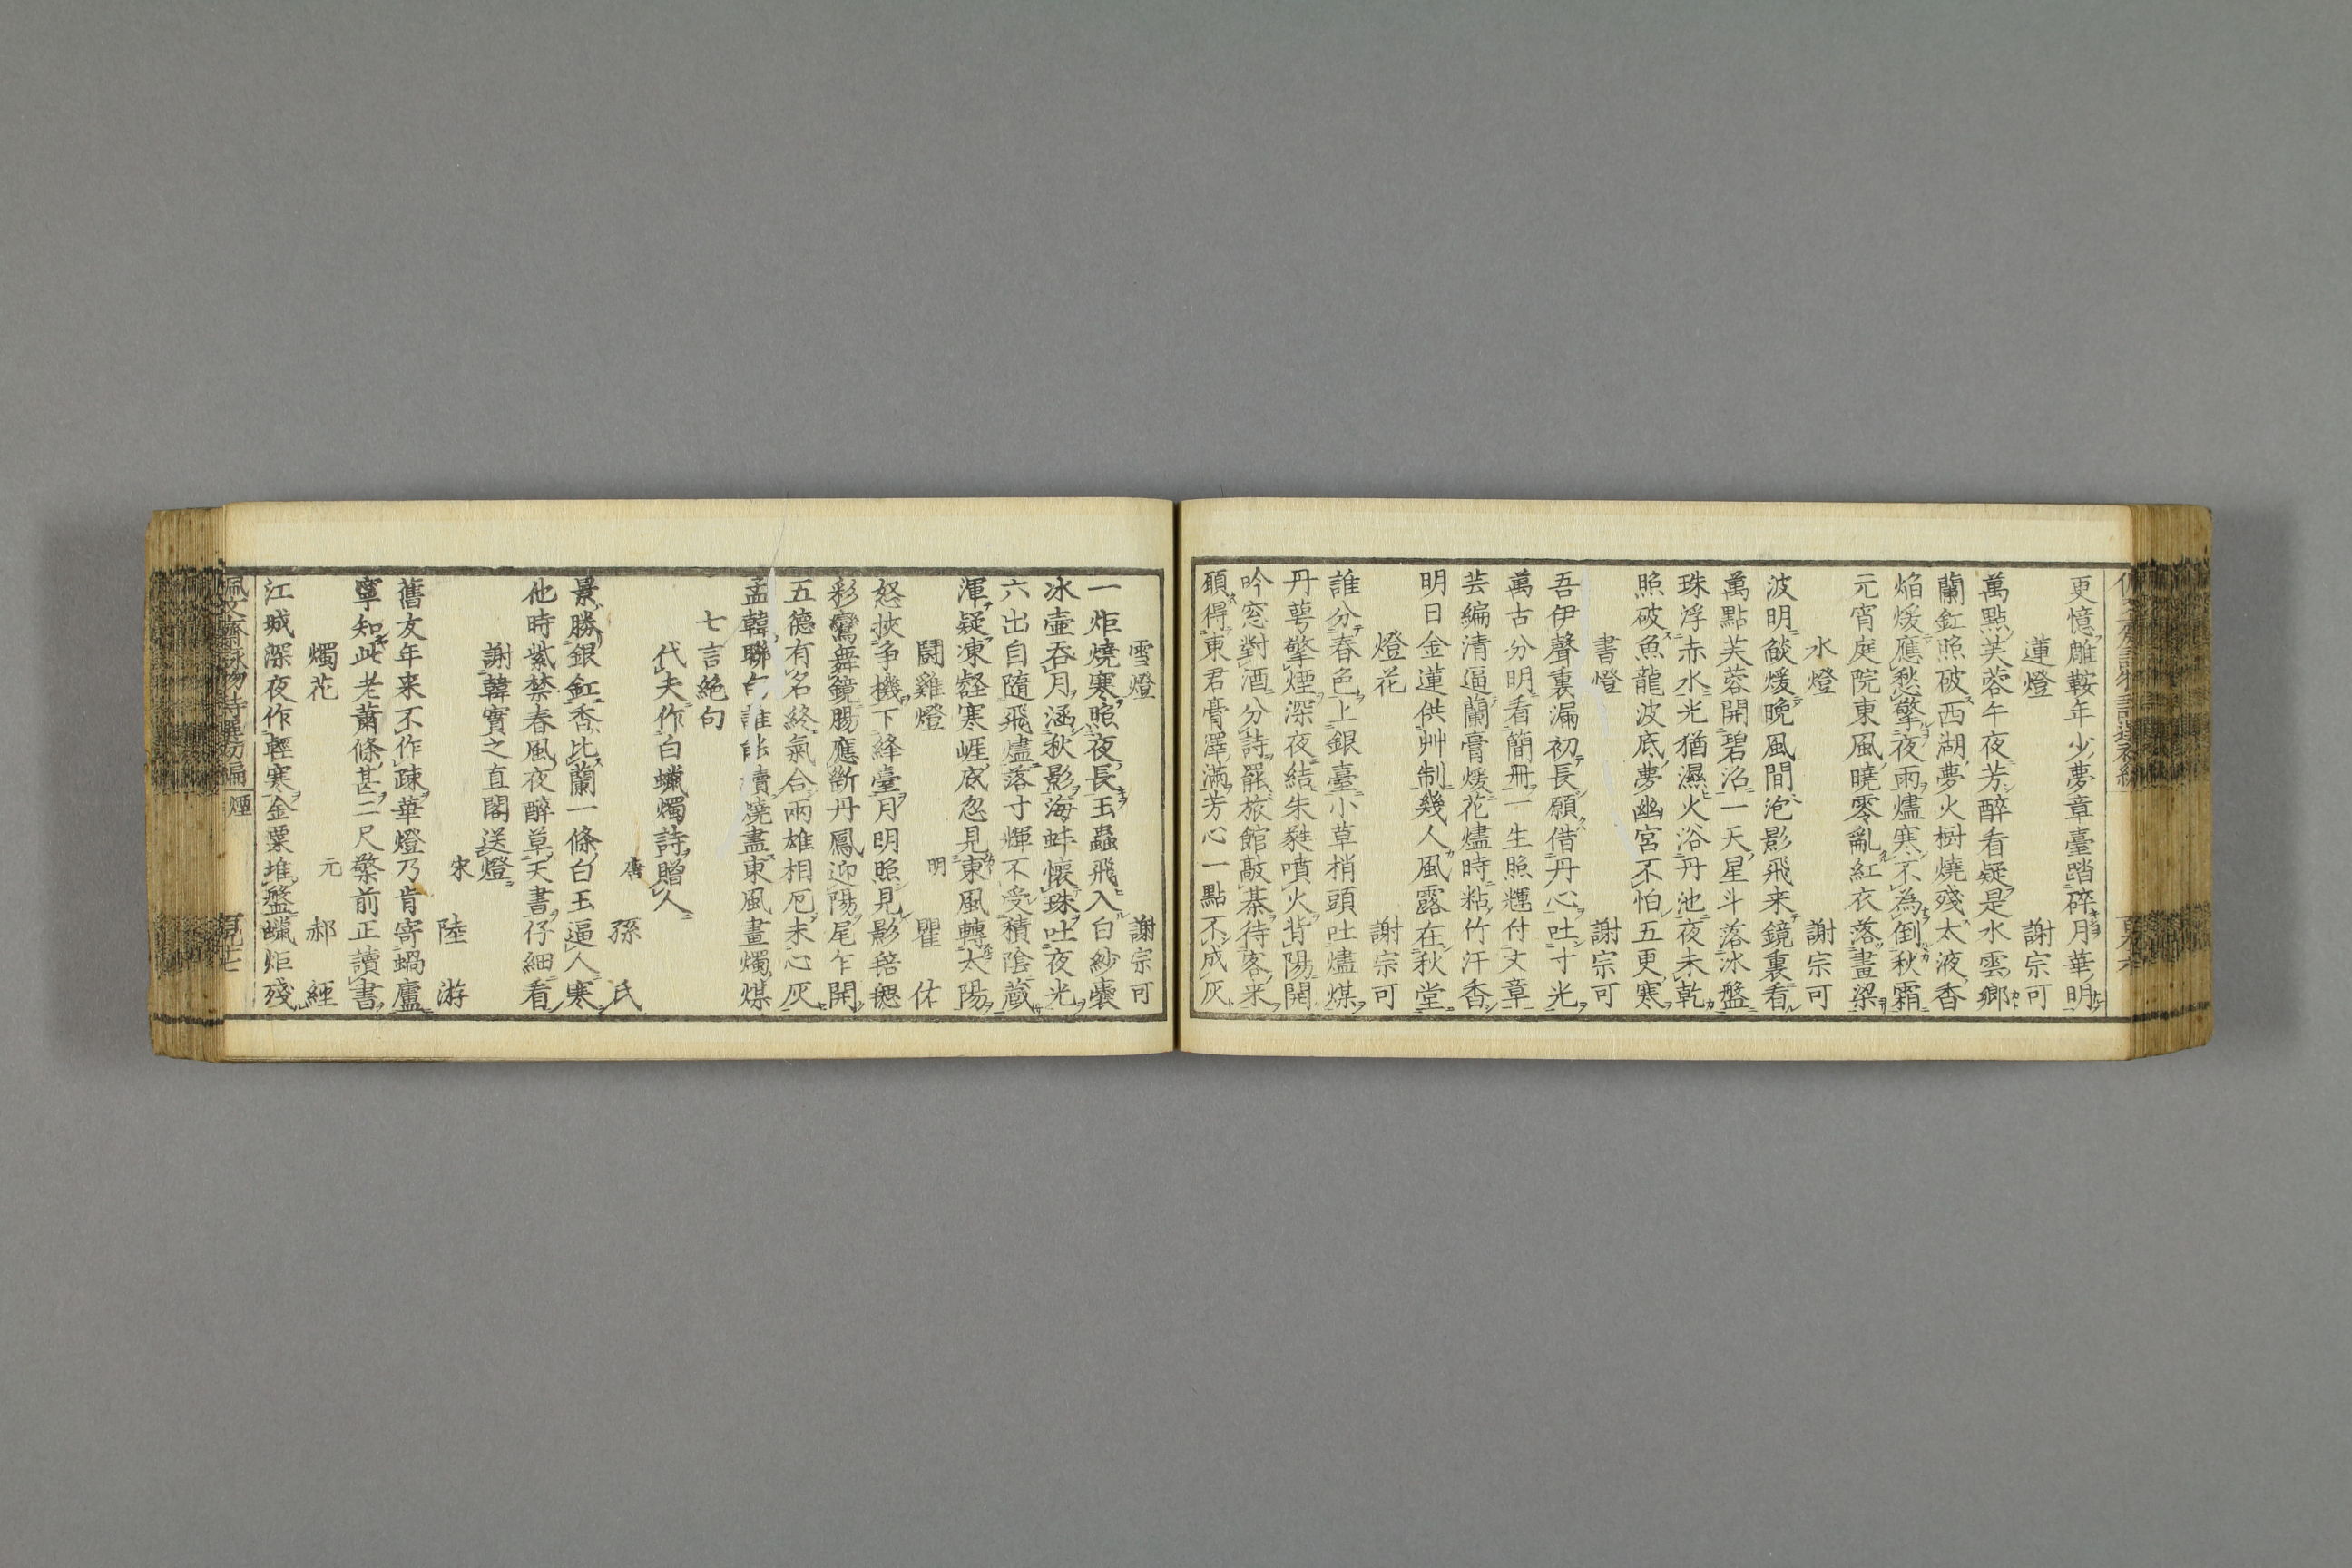 更憶雕鞍年少夢章臺踏碎月華明
蓮燈 謝宗可
萬點芙蓉午夜芳醉看疑是水雲鄉
蘭釭照破西湖夢火樹燒殘太液香
焰煖應愁擎夜雨燼寒不為倒秋霜
元宵庭院東風曉零亂紅衣落畫梁
水燈 謝宗可
波明燄煖晚風間泡影飛来鏡裏看
萬點芙蓉開碧沼一天星斗落冰盤
珠浮赤水光猶濕火浴丹池夜未乾
照破魚龍波底夢幽宮不怕五更寒
書燈 謝宗可
吾伊聲裏漏初長願借丹心吐寸光
萬古分明看簡冊一生照耀付文章
芸編清逼蘭膏煖花燼時粘竹汗香
明日金蓮供艸制幾人風露在秋堂
燈花 謝宗可
誰分春色上銀臺小草梢頭吐燼煤
丹萼擎煙深夜結朱㽔噴火背陽開
吟窓對酒分詩罷旅館敲棊待客来
願得東君膏澤滿芳心一點不成灰
雪燈 謝宗可
一炬燒寒照夜長玉蟲飛入白紗囊
冰壺吞月涵秋影海蚌懷珠吐夜光
六出自隨飛燼落寸輝不受積陰藏
渾疑凍壑寒崕底忽見東風轉太陽
鬪雞燈 明 瞿佑
怒挾争機下絳臺月明照見影毰毸
彩鸞舞鏡腸應斷丹鳳迎陽尾乍開
五德有名終氣合兩雄相厄未心灰
孟韓聯句誰能續燒盡東風畫燭煤
七言絕句
代夫作白蠟燭詩贈人
唐 孫氏
景勝銀釭香比蘭一條白玉逼人寒
他時紫禁春風夜醉草天書仔細看
謝韓實之直閣送燈
宋 陸游
舊友年来不作疎華燈乃肯寄蝸廬
寧知此老蕭條甚二尺檠前正讀書
燭花 元 郝經
江城深夜作輕寒金粟堆盤蠟炬殘
佩文齋詠物詩選初編 煙